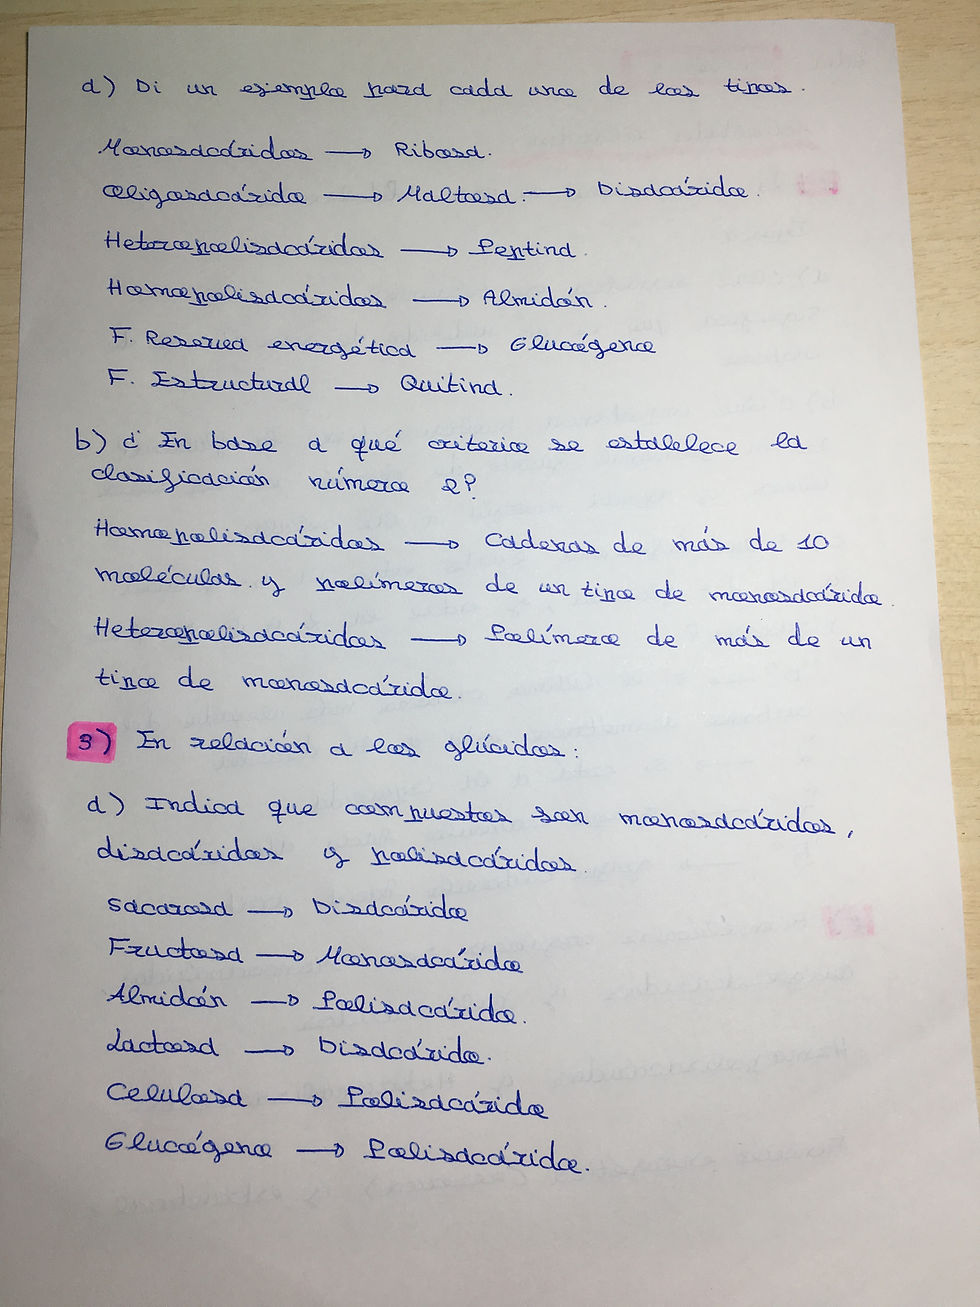 a) Di un ejemplo para cada uno de los tipos.
Monosacáridos → Ribosa.
Oligosacárido → Maltosa. → Disacárido.
Heteropolisacáridos → Peptina.
Homopolisacáridos → Almidón.
F. Reserva energética → Glucógeno
F. Estructural → Quitina.
b) ¿ En base a qué criterio se establece la
clasificación número 2?
Homopolisacáridos → Cadenas de más de 10
moléculas y polímeros de un tipo de monosacárido.
Heteropolisacáridos → Polímero de más de un
tipo de monosacárido.
3) En relación a los glúcidos:
a) Indica que compuestos son monosacáridos,
disacáridos y polisacáridos.
Sacarosa → Disacárido
Fructosa → Monosacárido
Almidón → Polisacárido.
Lactosa → Disacárido.
Celulosa → Polisacárido
Glucógeno → Polisacárido.